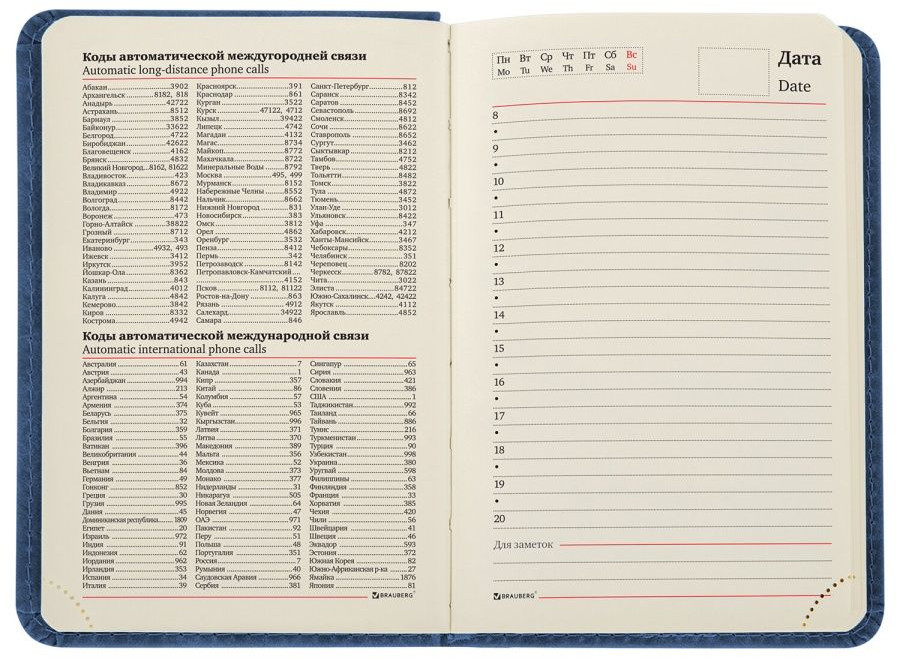 Коды автоматической междугородней связи
Automatic long-distance phone calls
Абакан 3902
Архангельск 8182, 818
Анадырь 42722
Астрахань 8512
Барнаул 3852
Байконур 33622
Белгород 4722
Биробиджан 42622
Благовещенск 4162
Брянск 4832
Великий Новгород 8162, 81622
Владивосток 423
Владикавказ 8672
Владимир 4922
Волгоград 8442
Вологда 8172
Воронеж 473
Горно-Алтайск 38822
Грозный 8712
Екатеринбург 343
Иваново 4932, 493
Ижевск 3412
Иркутск 3952
Йошкар-Ола 8362
Казань 843
Калининград 4012
Калуга 4842
Кемерово 3842
Киров 8332
Кострома 4942
Красноярск 391
Краснодар 861
Курган 3522
Курск 47122, 4712
Кызыл 39422
Липецк 4742
Магадан 4132
Магас 8734
Майкоп 8772
Махачкала 8722
Минеральные Воды 8792
Москва 495, 499
Мурманск 8152
Набережные Челны 8552
Нальчик 8662
Нижний Новгород 831
Новосибирск 383
Омск 3812
Орел 4862
Оренбург 3532
Пенза 8412
Пермь 342
Петрозаводск 8142
Петропавловск-Камчатский
4152
Псков 8112, 81122
Ростов-на-Дону 863
Рязань 4912
Салехард 34922
Самара 846
Санкт-Петербург 812
Саранск 8342
Саратов 8452
Севастополь 8692
Смоленск 4812
Сочи 8622
Ставрополь 8652
Сургут 3462
Сыктывкар 8212
Тамбов 4752
Тверь 4822
Тольятти 8482
Томск 3822
Тула 4872
Тюмень 3452
Улан-Удэ 3012
Ульяновск 8422
Уфа 347
Хабаровск 4212
Ханты-Мансийск 3467
Чебоксары 8352
Челябинск 351
Череповец 8202
Черкесск 8782, 87822
Чита 3022
Элиста 84722
Южно-Сахалинск 4242, 42422
Якутск 4112
Ярославль 4852
Коды автоматической международной связи
Automatic international phone calls
Австралия 61
Австрия 43
Азербайджан 994
Алжир 213
Аргентина 54
Армения 374
Беларусь 375
Бельгия 32
Болгария 359
Бразилия 55
Ватикан 396
Великобритания 44
Венгрия 36
Вьетнам 84
Германия 49
Гонконг 852
Греция 30
Грузия 995
Дания 45
Доминиканская республика 1809
Египет 20
Израиль 972
Индия 91
Индонезия 62
Иордания 962
Ирландия 353
Испания 34
Италия 39
Казахстан 7
Канада 1
Кипр 357
Китай 86
Колумбия 57
Куба 53
Кувейт 965
Кыргызстан 996
Латвия 371
Литва 370
Македония 389
Мальта 356
Мексика 52
Молдова 373
Монако 377
Нидерланды 31
Никарагуа 505
Новая Зеландия 64
Норвегия 47
ОАЭ 971
Пакистан 92
Перу 51
Польша 48
Португалия 351
Россия 7
Румыния 40
Саудовская Аравия 966
Сербия 381
Сингапур 65
Сирия 963
Словакия 421
Словения 386
США 1
Таджикистан 992
Таиланд 66
Тайвань 886
Тунис 216
Туркменистан 993
Турция 90
Узбекистан 998
Украина 380
Уругвай 598
Филиппины 63
Финляндия 358
Франция 33
Хорватия 385
Чехия 420
Чили 56
Швейцария 41
Швеция 46
Эквадор 593
Эстония 372
Южная Корея 82
Южно-Африканская р-ка 27
Ямайка 1876
Япония 81
BRAUBERG®
Пн Вт Ср Чт Пт Сб Вс
Mo Tu We Th Fr Sa Su
Дата
Date
8
•
9
•
10
•
11
•
12
•
13
•
14
•
15
•
16
•
17
•
18
•
19
•
20
Для заметок
BRAUBERG®